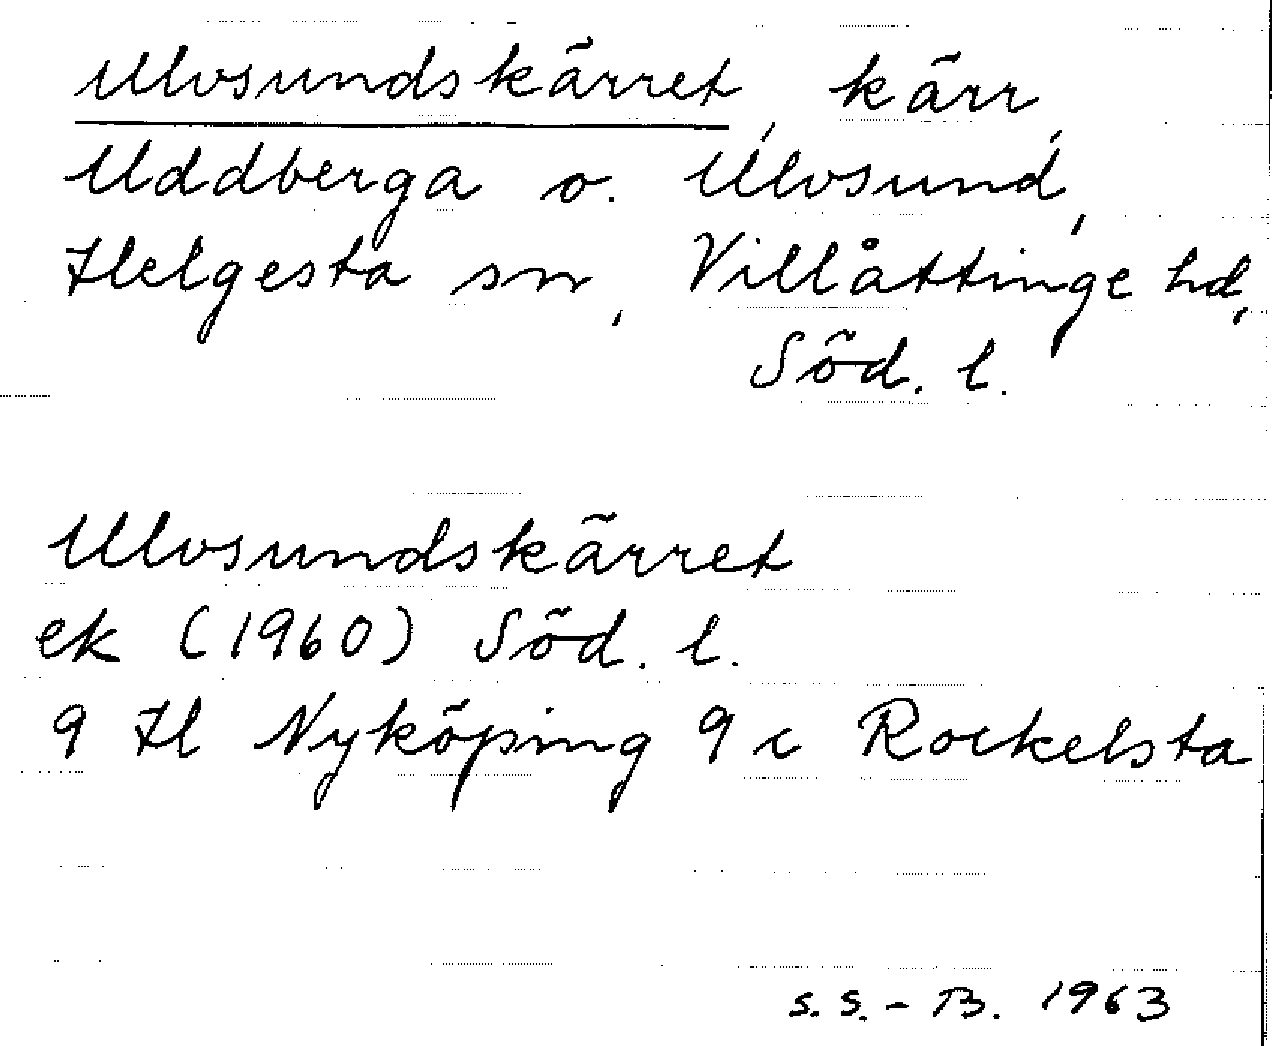 Ulvsundskärret, kärr,
Uddberga o. Ulvsund,
Helgesta sn, Villåttinge hd,
Söd. l.
Ulvsundskärret
ek (1960) Söd. l.
9 H Nyköping 9 c Rockelsta
S. S. - B. 1963